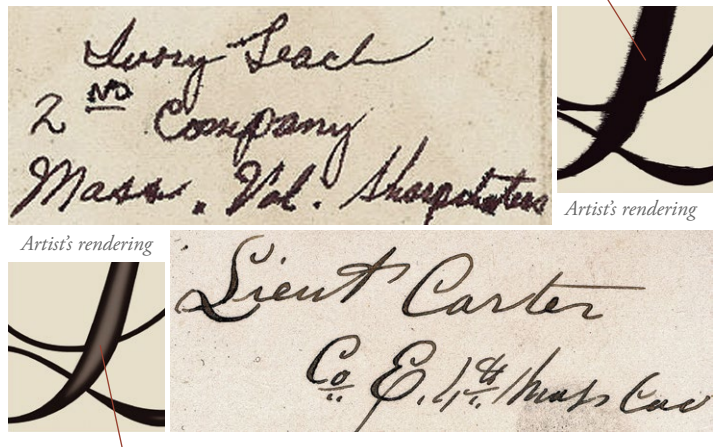 Ivory Leach
2 ND Company
Mass. Vol. Sharpshooters
Artist's rendering
Artist's rendering
Lieut Carter
Co E. 1st Mass Cav